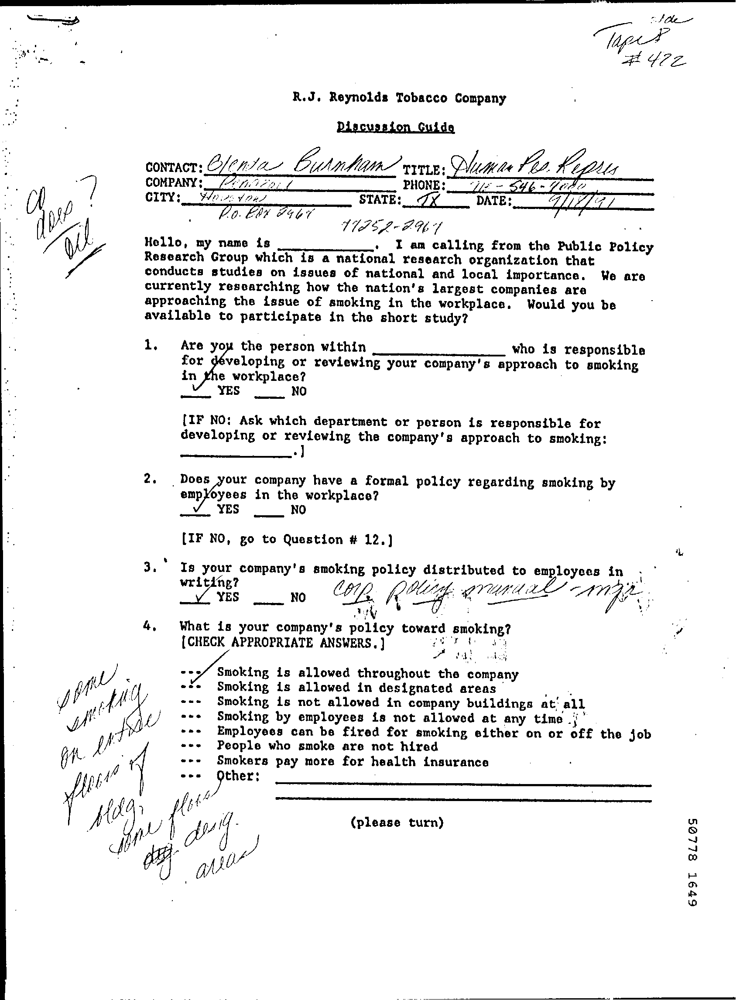 side
Tape 8
# 422
R.J. Reynolds Tobacco Company
Discussion Guide
CONTACT: Glenda Burnham TITLE: Human Res. Repres
COMPANY: Pennzoil PHONE: 546-4000
CITY: Houston STATE: TX DATE: 9/18/91
P.O. Box 2967
77252-2967
CO
does?
oil
Hello, my name is ____________. I am calling from the Public Policy
Research Group which is a national research organization that
conducts studies on issues of national and local importance. We are
currently researching how the nation's largest companies are
approaching the issue of smoking in the workplace. Would you be
available to participate in the short study?
1. Are you the person within ________________ who is responsible
for developing or reviewing your company's approach to smoking
in the workplace?
✓ YES ____ NO
[IF NO: Ask which department or person is responsible for
developing or reviewing the company's approach to smoking:
______________.]
2. Does your company have a formal policy regarding smoking by
employees in the workplace?
✓ YES ____ NO
[IF NO, go to Question # 12.]
3. Is your company's smoking policy distributed to employees in
writing?
✓ YES ____ NO corp policy manual - mgr
4. What is your company's policy toward smoking?
[CHECK APPROPRIATE ANSWERS.]
--- Smoking is allowed throughout the company
✓ --- Smoking is allowed in designated areas
--- Smoking is not allowed in company buildings at all
--- Smoking by employees is not allowed at any time
--- Employees can be fired for smoking either on or off the job
--- People who smoke are not hired
--- Smokers pay more for health insurance
--- Other:
some
smoking
on entire
floors of
bldg,
some floors
desig.
areas
(please turn)
50778 1649